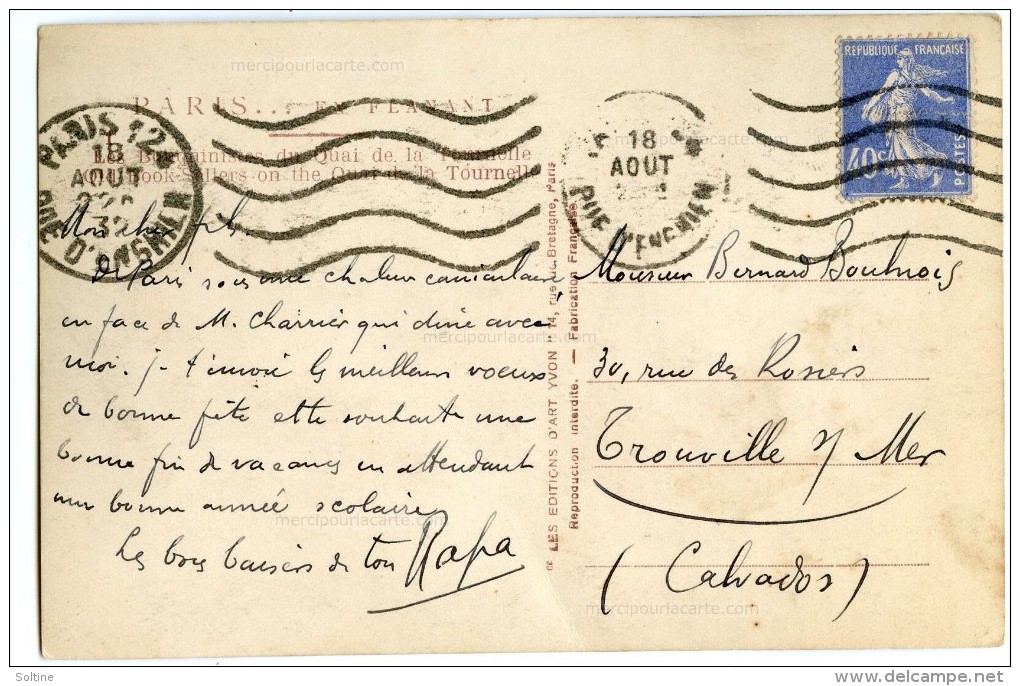 mercipourlacarte.com
mercipourlacarte.com
REPUBLIQUE FRANÇAISE
40c
POSTES
PARIS... EN FLANANT
Les Bouquinistes du Quai de la Tournelle
Old Book-Sellers on the Quai de la Tournelle
PARIS 12
18
AOUT
RUE D'ENGHIEN
18
AOUT
RUE D'ENGHIEN
Mon cher fils
De Paris sous une chaleur caniculaire,
en face de M. Charrier qui dine avec
moi. Je t'envoie les meilleurs voeux
de bonne fête et te souhaite une
bonne fin de vacances en attendant
une bonne année scolaire
Les bons baisers de ton Papa
"LES EDITIONS D'ART YVON" 14, rue de Bretagne, Paris
Reproduction interdite. — Fabrication Française.
Monsieur Bernard
30, rue des Rosiers
Trouville s/ Mer
(Calvados)
mercipourlacarte.com
mercipourlacarte.com
mercipourlacarte.com
mercipourlacarte.com
Soltine
delcampe.net